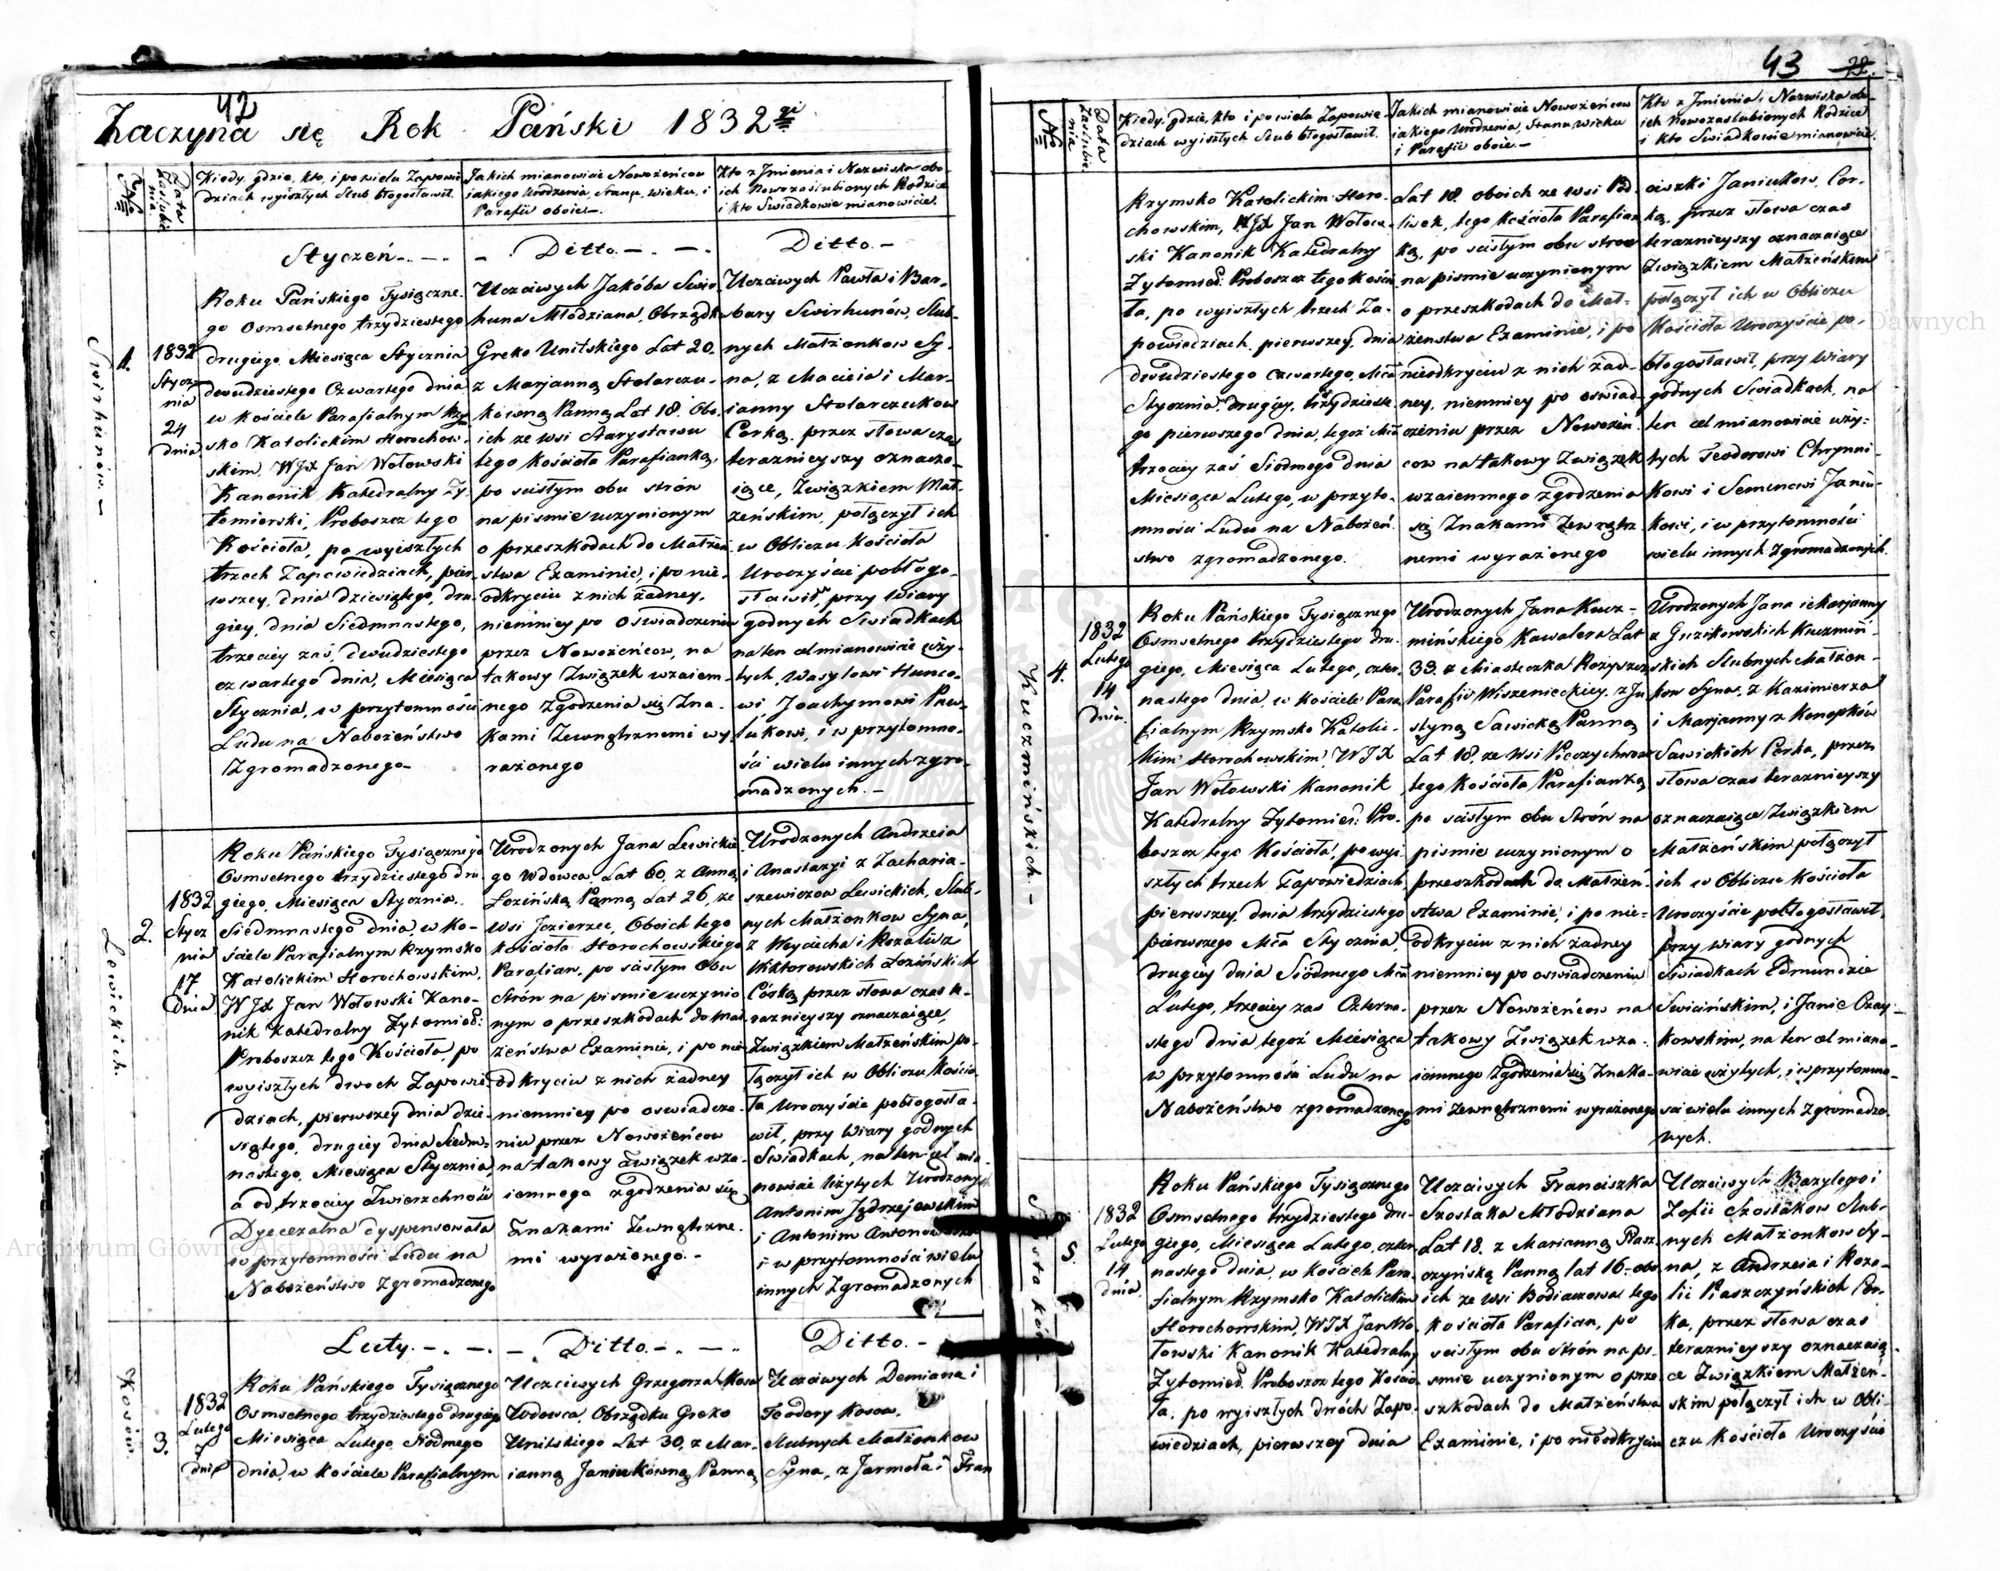 42
Zaczyna się Rok Pański 1832gi
No
Data zaślubienia
Kiedy, gdzie, kto, i po wielu Zapowie
dziach wyiszłych Slub błogosławił.
Jakich mianowicie Nowożeńcow
jakiego Urodzenia, Stanu, Wieku, i
Parafii oboie.—
Kto z Jmienia i Nazwiska obo-
ich Nowozaślubionych Rodzice
i kto Swiadkowie mianowicie.
Styczeń.—.—
—. Ditto.—.—
Ditto.—
Swirhunów.—
1.
1832
Stycz
nia
24
dnia
Roku Pańskiego Tysiączne
go Osmsetnego trzydziestego
drugiego Miesiąca Stycznia
dwudziestego Czwartego dnia
w kościele Parafialnym Rzym
sko Katolickim Horochow-
skim, WJX Jan Wołowski
Kanonik Katedralny Zy-
tomierski, Proboszcz tego
Kościoła, po wyiszłych
trzech Zapowiedziach, pier-
wszey, dnia dziewiątego, dru-
giey, dnia Siedmnastego,
trzeciey zaś, dwudziestego
czwartego dnia, Miesiąca
Stycznia, w przytomności
Ludu na Nabożeństwo
Zgromadzonego—
Uczciwych Jakóba Swir-
huna Młodziana, Obrządku
Greko Unitskiego Lat 20.
z Marjanną Stolarczu-
kówną Panną Lat 18. Obo-
ich ze wsi Starystawu
tego Kościoła Parafianką,
po ścisłym obu strón
na pismie uczynionym
o przeszkodach do Małżeń
stwa Examinie, i po nie-
odkryciu z nich żadney,
niemniey po oswiadczeniu
przez Nowożeńcow, na
takowy Związek wzaiem-
nego Zgodzenia się Zna-
kami Zewnętrznemi wy-
rażonego
Uczciwych Pawła i Bar-
bary Swirhunów, Slub-
nych Małżonkow Sy-
na, z Macieia i Mar-
ianny Stolarczukow
Corką, przez słowa czas
teraznieyszy oznacza-
iące, Związkiem Mał-
żeńskim, połączył ich
w Obliczu Kościoła
Uroczyście pobłogo-
sławił, przy Wiary
godnych Swiadkach
na ten cel mianowicie uży-
tych, Wasylowi Hunco-
wi Joachymowi Paw-
lukowi, i w przytomno-
ści wielu innych zgro-
madzonych.—
Lewickich.
2.
1832
Stycz
nia
17
dnia
Roku Pańskiego Tysiącznego
Osmsetnego trzydziestego dru
giego, Miesiąca Stycznia,
Siedmnastego dnia, w Ko-
ściele Parafialnym Rzymsko
Katolickim Horochowskim,
WJX Jan Wołowski Kano-
nik Katedralny Zytomierd:
Proboszcz tego Kościoła, po
wyiszłych dwoch Zapowie
dziach, pierwszey dnia dzie-
siątego, drugiey dnia Siedm-
nastego, Miesiąca Stycznia
a od trzeciey Zwierzchność
Dyecezalna dyspensowała
w przytomności Ludu na
Nabożeństwo Zgromadzonego
Urodzonych Jana Lewickie
go Wdowca, Lat 60, z Anną
Lozińską Panną Lat 26, ze
wsi Jezierzec, Oboich tego
Kościoła Horochowskiego
Parafian, po ścisłym Obu
Strón na pismie uczynio
nym o przeszkodach do Mał
żeństwa Examinie, i po nie
odkryciu z nich żadney
niemniey po oswiadcze-
niu przez Nowożeńcow
na takowy związek wza-
iemnego zgodzenia się
Znakami Zewnętrzne-
mi wyrażonego.—
Urodzonych Andrzeia
i Anastazyi z Zacharia-
szewiczow Lewickich, Slub-
nych Małżonkow Syna,
z Woyciecha i Rozalii z
Wiktorowskich Łozińskich
Córką przez słowa czas te-
raznieyszy oznaczaiące,
Związkiem Małżeńskim po-
łączył ich w Obliczu Kościo-
ła Uroczyście pobłogosła-
wił, przy Wiary godnych
Swiadkach, na ten cel mia
nowicie Użytych Urodzonych
Antonim Jędrzejewskim
i Antonim
i w przytomności wielu
innych Zgromadzonych
Luty.—.—
—. Ditto.—.—
Ditto.—
Kosów.
3.
1832
Lutego
7
dnia
Roku Pańskiego Tysiącznego
Osmsetnego trzydziestego drugiego
Miesiąca Lutego Siódmego
dnia, w Kościele Parafialnym
Uczciwych Grzegorza Kosa
Wdowca, Obrządku Greko
Unitskiego Lat 30, z Mar-
ianną Janiukówną Panną
Uczciwych Demiana i
Teodory Kosow,
Slubnych Małżonkow
Syna, z Jarmoła i Fran
43
No
Data zaślubienia
Kiedy, gdzie, kto i po wielu Zapowie
dziach wyiszłych Slub błogosławił.
Jakich mianowicie Nowożeńcow
jakiego Urodzenia, Stanu Wieku
i Parafii oboie.—
Kto z Jmienia i Nazwiska obo-
ich Nowozaslubionych Rodzice
i kto Swiadkowie mianowicie.
Rzymsko Katolickim Horo-
chowskim, WJX Jan Wołow-
ski Kanonik Katedralny
Zytomierd: Proboszcz tego Kościo
ła, po wyiszłych trzech Za-
powiedziach, pierwszey, dnia
dwudziestego czwartego, Mca
Stycznia, drugiey, trzydzieste-
go pierwszego dnia, tegoż Mca
trzeciey zaś Siódmego dnia
Miesiąca Lutego, w przyto-
mności Ludu na Nabożeń
stwo zgromadzonego.
Lat 18. oboich ze wsi Pod
lisek, tego Kościoła Parafian
ką, po ścisłym obu stron
na pismie uczynionym
o przeszkodach do Mał-
żeństwa Examinie, i po
nieodkryciu z nich żad-
ney, niemniey po oswiad-
czeniu przez Nowożeń-
cow na takowy Związek
wzaiemnego zgodzenia
się Znakami Zewnętrz-
nemi wyrażonego
ciszki Janiukow, Cor-
ką, przez słowa czas
teraznieyszy oznaczaiące
Związkiem Małżeńskim
połączył ich w Obliczu
Kościoła Uroczyście po-
błogosławił, przy Wiary
godnych Swiadkach, na
ten cel mianowicie uży-
tych Teodorowi Chrynni-
kowi i Semenowi Janiu-
kowi, i w przytomności
wielu innych Zgromadzonych.
Kuczmińskich.—
4.
1832
Lutego
14
dnia.
Roku Pańskiego Tysiącznego
Osmsetnego trzydziestego dru-
giego, Miesiąca Lutego, czter-
nastego dnia, w Kościele Para
fialnym Rzymsko Katolic-
kim Horochowskim, WJX
Jan Wołowski Kanonik
Katedralny Zytomier: Pro-
boszcz tego Kościoła, po wyi-
szłych trzech Zapowiedziach,
pierwszey, dnia trzydziestego
pierwszego Mca Stycznia,
drugiey dnia Siódmego Mca
Lutego, trzeciey zas Czterna-
stego dnia tegoż Miesiąca
w przytomności Ludu na
Nabożeństwo zgromadzonego
Urodzonych Jana Kucz-
mińskiego Kawalera Lat
33. z Miasteczka Rożyszcz
Parafii Wiszenieckiey, z Ju
styną Sawicką Panną
Lat 18, ze Wsi Pieczychwost
tego Kościoła Parafianką
po ścisłym obu Strón na
pismie uczynionym o
przeszkodach do Małżeń
stwa Examinie, i po nie-
odkryciu z nich żadney
niemniey po oswiadczeniu
przez Nowożeńcow na
takowy Związek wza-
iemnego Zgodzenia się Znaka-
mi Zewnętrznemi wyrażonego
Urodzonych Jana i Marjanny
z Guzikowskich Kuczmiń
skich Slubnych Małżon-
kow Syna, z Kazimierza
i Marjanny z Konopków
Sawickich Corką, przez
słowa czas teraznieyszy
oznaczaiące Związkiem
Małżeńskim połączył
ich w Obliczu Kościoła
Uroczyście pobłogosławił,
przy wiary godnych
Swiadkach Edmundzie
Swicińskim, i Janie Czay-
kowskim, na ten cel miano-
wicie użytych, i w przytomno-
sci wielu innych Zgromadzo
nych.
5.
1832
Lutego
14
dnia
Roku Pańskiego Tysiącznego
Osmsetnego trzydziestego dru-
giego, Miesiąca Lutego, czter
nastego dnia, w Kościele Para-
fialnym Rzymsko Katolickim
Horochowskim, WJX Jan Wo-
łowski Kanonik Katedralny
Zytomierd. Proboszcz tego Kościo
ła, po wyiszłych dwóch Zapo-
wiedziach, pierwszey dnia
Uczciwych Franciszka
Szostaka Młodziana
Lat 18. z Marianną Piasz-
czyńską Panną lat 16. obo
ich ze wsi Bodiaczowa tego
Kościoła Parafian, po
scisłym obu Strón na pi-
smie uczynionym o prze-
szkodach do Małżeństwa
Examinie, i po nieodkryciu
Uczciwych Bazylego i
Zofii Szostakow Slub-
nych Małżonkow Sy-
na, z Andrzeia i Roza-
lii Piaszczyńskich Cor-
ką, przez słowa czas
teraznieyszy oznaczaią-
ce Związkiem Małżeń-
skim połączył ich w Obli-
czu Kościoła Uroczyście
Archiwum Główne Akt Dawnych